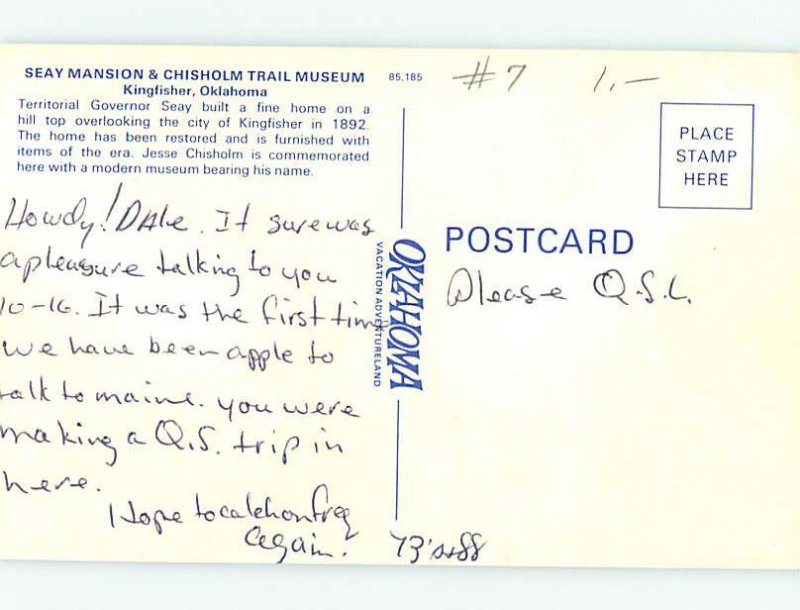 SEAY MANSION & CHISHOLM TRAIL MUSEUM
Kingfisher, Oklahoma
Territorial Governor Seay built a fine home on a
hill top overlooking the city of Kingfisher in 1892.
The home has been restored and is furnished with
items of the era. Jesse Chisholm is commemorated
here with a modern museum bearing his name.
85.185
#7 1,—
PLACE
STAMP
HERE
Howdy! Dale. It sure was
a pleasure talking to you
10-16. It was the first time
we have been apple to
talk to maine. you were
making a Q.S. trip in
here.
Hope to catch on freq
Again.
73's + 88
OKLAHOMA
VACATION ADVENTURELAND
POSTCARD
Please Q.S.L.